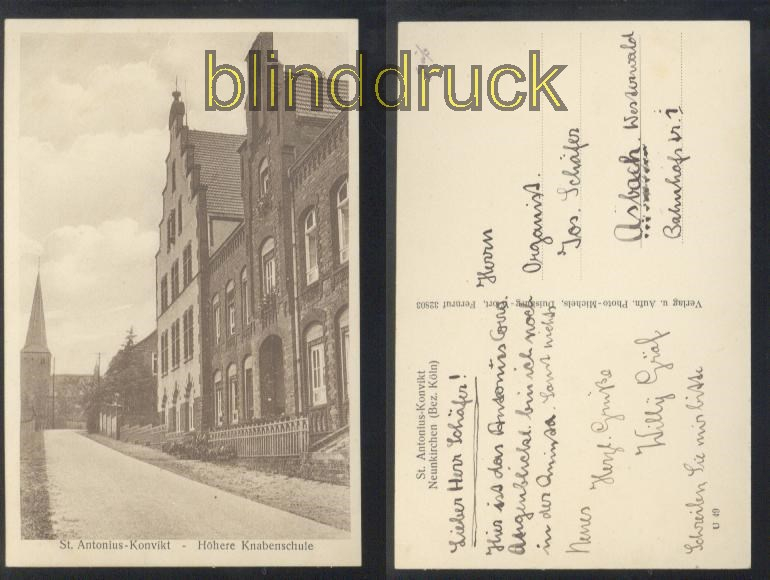 blinddruck
St. Antonius-Konvikt - Höhere Knabenschule
St. Antonius-Konvikt
Neunkirchen (Bez. Köln)
Lieber Herr Schäfer!
Hier ist das Antonius Conv.
Augenblickl. bin ich noch
in der Quinta. Sonst nichts
Neues
Herzl. Grüße
Willy Gräf
Schreiben Sie mir bitte
U 49
Verlag u. Aufn. Photo-Michels, Duisburg- Fernruf 32803
Herrn
Organist.
Jos. Schäfer
Asbach. Westerwald
Bahnhofstr. 1